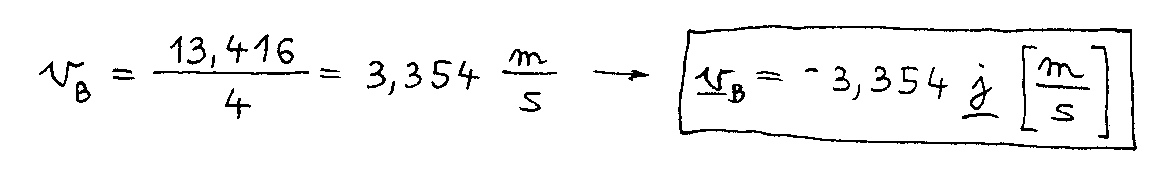 v_B = 13,416/4 = 3,354 m/s → v_B = -3,354 j [m/s]